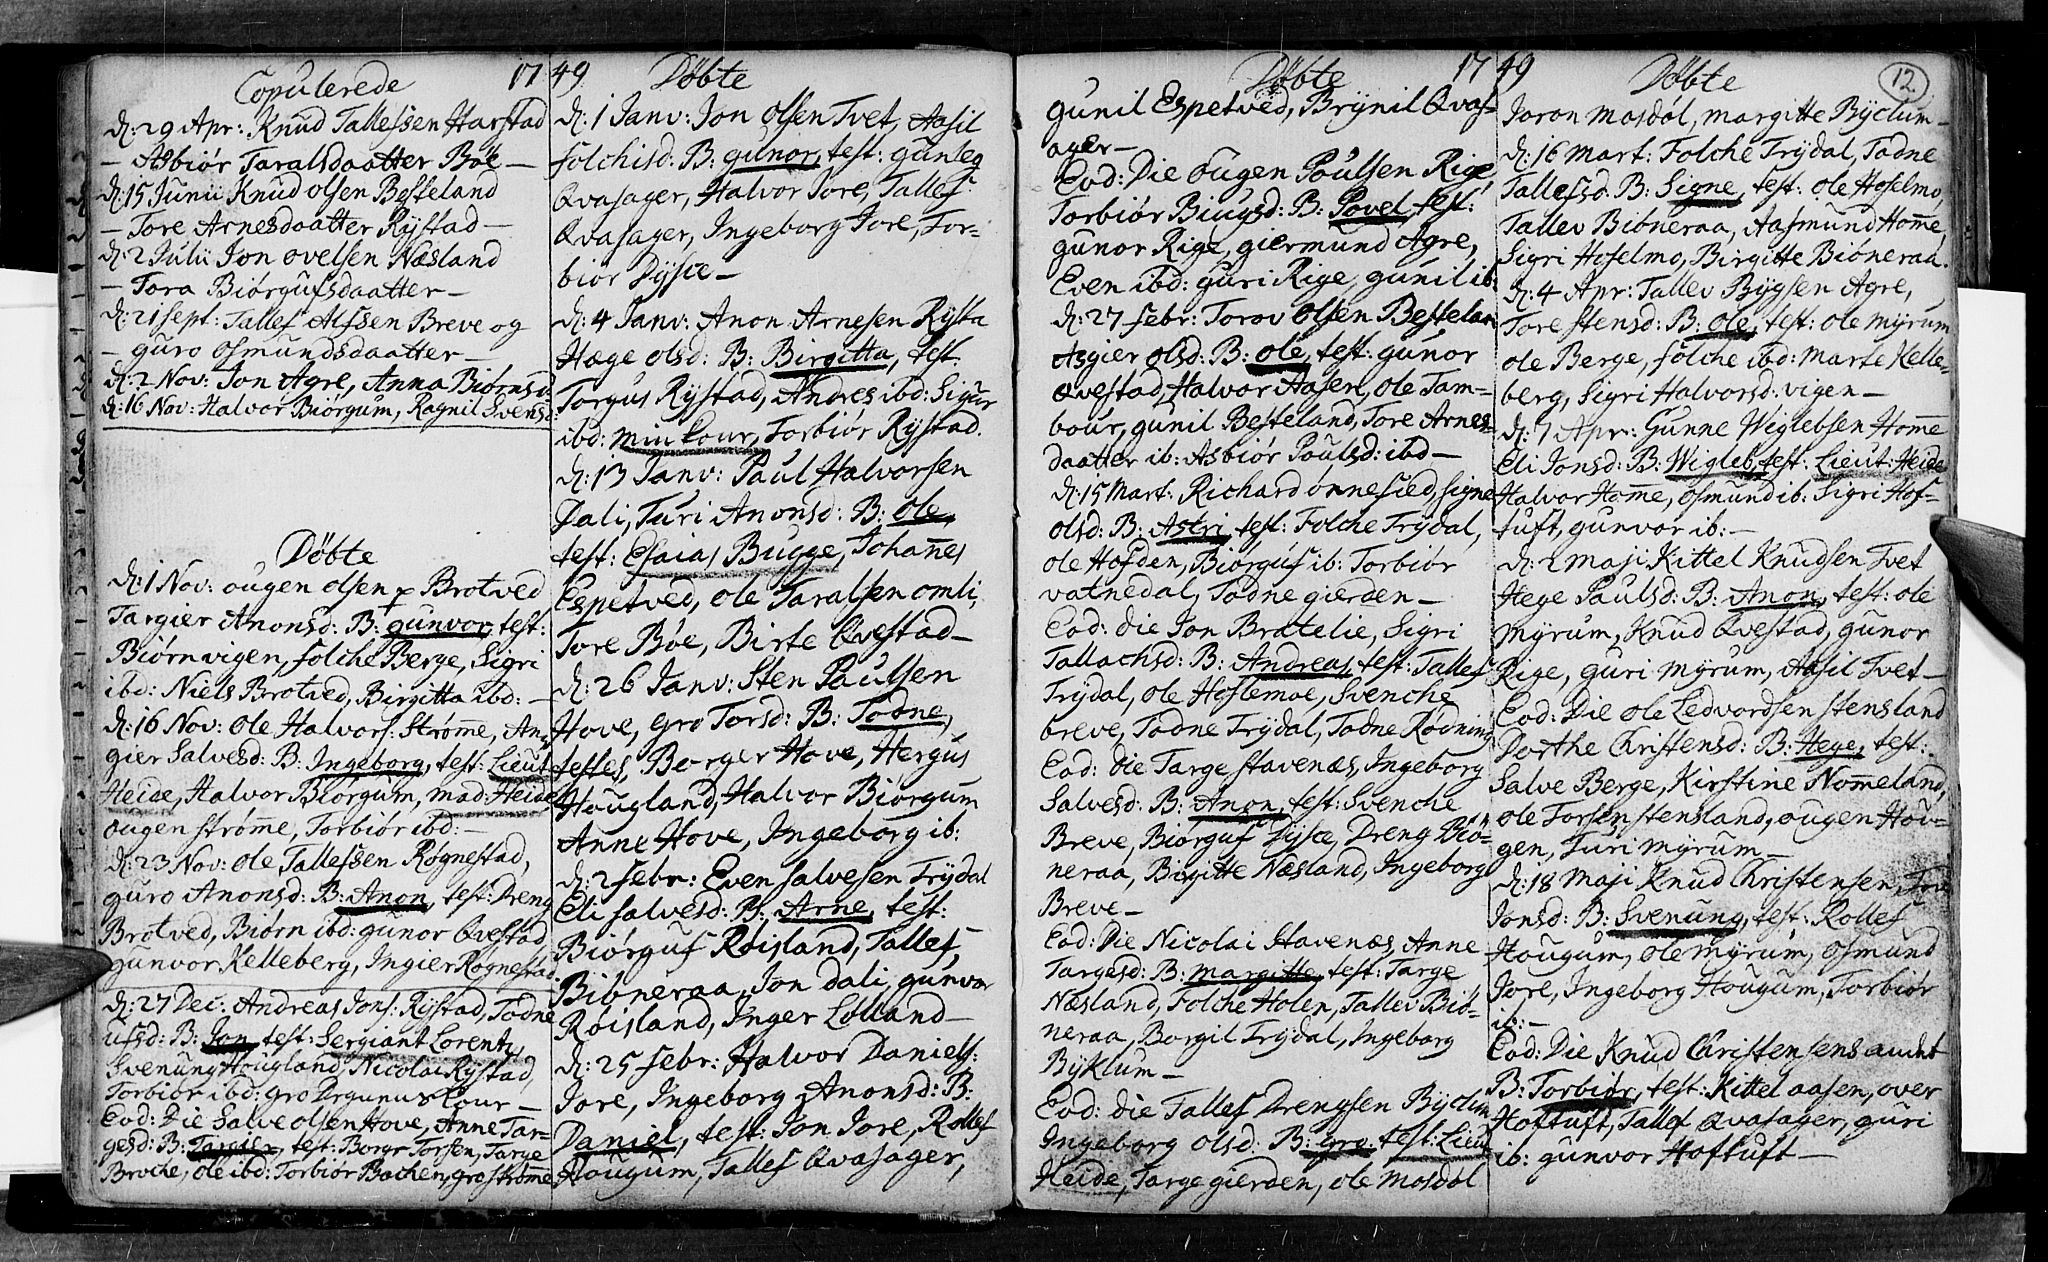 Copulerede 17
d: 29 Apr: Knud Tallefsen Harstad
– Asbiør Taralsdaatter Bøe –
d: 15 Junii Knud olsen Besteland
– Tore Arnesdaatter Rÿstad –
d: 2 Julii Jon ovelsen Næsland
– Tora Biørgufsdaatter –
d: 21 sept: Tallef Alfsen Breve og
– guro osmundsdaatter –
d: 2 Nov: Jon Agre, Anna Biørnsd:
d: 16 Nov: Halvor Biørgum, Ragnil Svensd:
Døbte
d: 1 Nov: ougen olsen Brotved
Targier Anonsd: B: gunvor, test:
Biørn vigen, folche Berge, Sigri
ibd: Niels Brotved, Birgitta ibd: –
d: 16 Nov: ole Halvors: Strøm̄e, An
gier Salvesd: B: Ingeborg, test: Lieut
Heide, Halvor Biørgum, mad: Heide
ougen strøm̄e, Torbiør ibd: –
d: 23 Nov: ole Tallefsen Røgnestad,
guro Anonsd: B: Anon, test: Dreng
Brotved, Biørn ibd: gunor Qvestad,
gunvor Kelleberg, Ingier Røgnestad
d: 27 Dec: Andreas Jons: Rÿstad, Todne
ufsd: B: Jon, test: Sergiant Lorentz,
Svenung Hougland, Nicolai Rÿstad,
Torbiør ibd: gro
Eod: Die Salve olsen Hove, Anne Tar-
gesd: B: test: Borgr Torsen, Targe
Broche, ole ibd: Torbiør Bachen, gro strøm̄e
49 Døbte
d: 1 Janv: Jon olsen Tvet, Aasil
folchisd: B: gunor, test: gunleg
Qvasager, Halvor Jore, Tallef
Qvasager, Ingeborg Jore, Tor-
biør Dÿsce –
d: 4 Janv: Anon Arnesen Rÿsta
Hæge olsd: B: Birgitta, test
Torgus Rÿstad, Andres ibd: Sigur
ibd: min kour, Torbiør Rÿstad.
d: 13 Janv: Paul Halvorsen
Dali, Turi Anonsd: B: ole,
test: Esaias Bugge, Johan̄es
Espetved, ole Taralsen omli,
Tore Bøe, Birte Qvestad –
d: 26 Janv: Sten Paulsen
Hove, gro Torsd: B: Todne,
testes, Borger Hove, Hergus
Hougland, Halvor Biørgum
Anne Hove, Ingeborg ib:
d: 2 febr: Even salvesen Trÿdal
Eli salvesd: B: Arne, test:
Biørguf Røisland, Tallef
Biöneraa, Jon dali, gunvor
Røisland, Inger Lølland –
d: 25 febr: Halvor Daniels:
Jore, Ingeborg Anonsd: B:
Daniel, test: Jon Jore, Rollef
Hougum, Tallef Qvasager,
Døbte 17
gunil Espetved, Brÿnil Qvas-
ager –
Eod: Die ougen Poulsen Rige
Torbiør Biugsd: B: Povel, test:
gunor Rige, giermund Agre,
Even ibd: guri Rige, gunil ib:
d: 27 febr: Torov olsen Bestelan
Asgier olsd: B: ole, test: gunor
Qvestad, Halvor Aasen, ole Tam-
bour, gunil Besteland, Tore Arnes-
daatter ib: Asbiør Poulsd: ibd –
d: 15 Mart: Richard onnesied, Signe
olsd: B: Astri, test: Folche Trÿdal,
ole Hofden, Biørguf ib: Torbiør
vatnedal, Todne gierden –
Eod: die Jon Bratelie, Sigri
Tallachsd: B: Andreas, test: Tallef
Trÿdal, ole Hoslemoe, Svenche
breve, Todne Trÿdal, Todne Rødning
Eod: die Targe stavenæs, Ingeborg
Salvesd: B: Anon, test: Svenche
Breve, Biørguf Dÿsce, Dreng Biö-
neraa, Birgitte Næsland, Ingeborg
Breve –
Eod: Die Nicolai Stavenæs, Anne
Targesd: B: margitte, test: Targe
Næsland, Folche Holen, Tallev Biö-
neraa, Borgil Trÿdal, Ingeborg
Bÿklum –
Eod: die Tallef Drengsen Bÿclum
Ingeborg olsd: B: gro, test: Lieut
Heide, Targe gierden, ole Mosdøl
49 Døbte 12
Joron mosdøl, margitte Bÿclum –
d: 16 Mart: Folche Trÿdal, Todne
Tallefsd: B: Signe, test: ole Hoselmo,
Tallev Biöneraa, Aasmund Hom̄e
Sigri Hoselmo, Birgitte Biöneraa.
d: 4 Apr: Tallev Bÿgsen Agre,
Tore stensd: B: ole, test: ole mÿrum
ole Berge, folche ibd: marte Kelle-
berg, Sigri Halvorsd: vigen –
d: 7 Apr: Gunne Wiglebsen Hom̄e
Eli Jonsd: B: Wigleb, test: Lieut: Heide
Halvor Hom̄e, osmund ib: Sigri Hof-
tuft, gunvor ib: –
d: 2 Maji Kittel Knudsen Tvet
Hege Paulsd: B: Anon, test: ole
mÿrum, Knud Qvestad, gunor
Rige, guri mÿrum, Aasil Tvet –
Eod: Die ole Ledvordsen stensland
Dorthe Christensd: B: Hege, test:
Salve Berge, Kirstine Nom̄eland,
ole Torsen stensland, ougen Hou-
gen, Turi Mÿrum –
d: 18 Maji Knud Christensen,
Jonsd: B: Svenung, test: Rollef
Hougum, ole mÿrum, osmund
Jore, Ingeborg Hougum, Torbiør
ib: –
Eod: Die Knud Christensens andet
B: Torbiør, test: Kittel aasen, over
Hoftuft, Tallef Qvasager, guri
ib: gunvor Hoftuft –